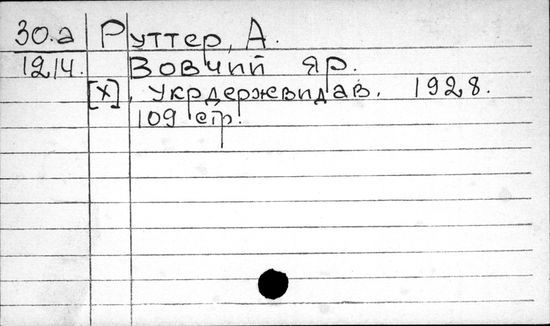 30.а Руттер, А.
1214. Вовчий яр.
[X], Укрдержвидав. 1928.
109 стр.